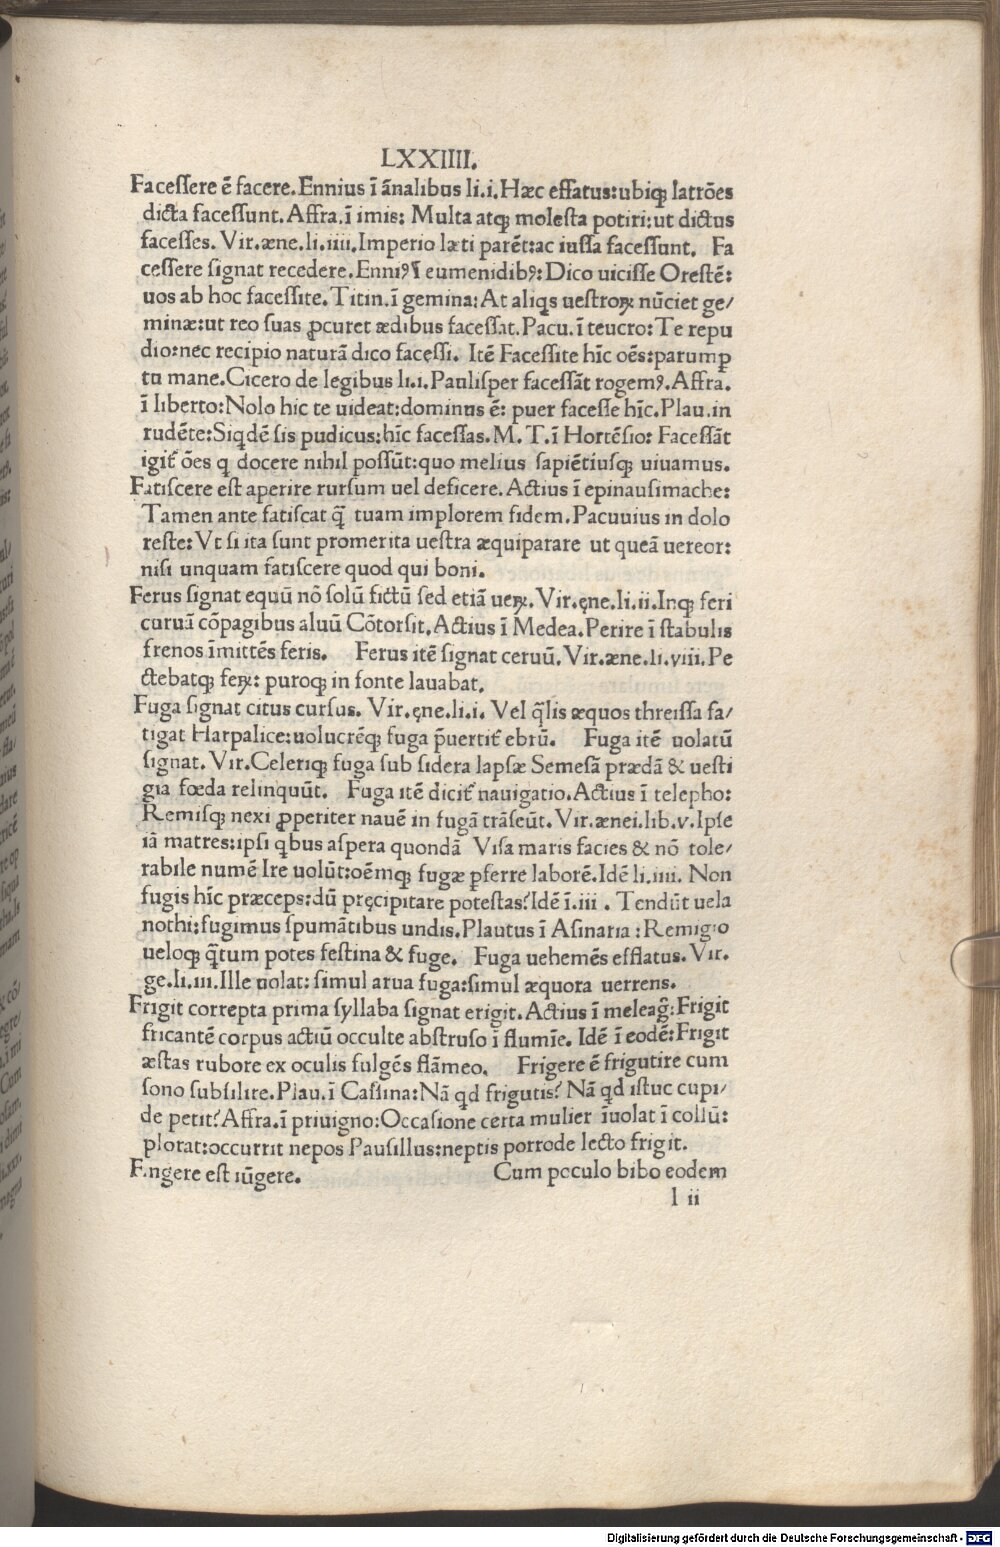 LXXIIII.
Faceſſere ē facere. Ennius ī ānalibus li.i. Hæc effatus: ubiqꝫ latrōes
dicta faceſſunt. Affra. ī imis: Multa atqꝫ moleſta potiri: ut dictus
faceſſes. Vir. æne. li. iiii. Imperio læti parēt: ac iuſſa faceſſunt. Fa
ceſſere ſignat recedere. Enniꝰ ī eumenidibꝰ: Dico uiciſſe Oreſtē:
uos ab hoc faceſſite. Titin. ī gemina: At aliqs ueſtroꝝ nūciet ge/
minæ: ut reo ſuas ꝓcuret ædibus faceſſat. Pacu. ī teucro: Te repu
dio: nec recipio naturā dico faceſſi. Itē Faceſſite hīc oēs: parumꝑ
tu mane. Cicero de legibus li. i. Pauliſper faceſſāt rogemꝰ. Affra.
ī liberto: Nolo hic te uideat: dominus ē: puer faceſſe hīc. Plau. in
rudēte: Siqdē ſis pudicus: hīc faceſſas. M. T. ī Hortēſio: Faceſſāt
igit̄ ōes q docere nihil poſſūt: quo melius ſapiētiuſqꝫ uiuamus.
Fatiſcere eſt aperire rurſum uel deficere. Actius ī epinauſimache:
Tamen ante fatiſcat q̄ tuam implorem fidem. Pacuuius in dolo
reſte: Vt ſi ita ſunt promerita ueſtra æquiparare ut queā uereor:
niſi unquam fatiſcere quod qui boni.
Ferus ſignat equū nō ſolū fictū ſed etiā ueꝝ. Vir. ęne. li. ii. Inqꝫ feri
curuā cōpagibus aluū Cōtorſit. Actius ī Medea. Perire ī ſtabulis
frenos īmittēs feris. Ferus itē ſignat ceruū. Vir. æne. li. viii. Pe
ctebatqꝫ feꝝ: puroqꝫ in fonte lauabat.
Fuga ſignat citus curſus. Vir. ęne. li. i. Vel q̄lis æquos threiſſa fa/
tigat Harpalice: uolucrēqꝫ fuga p̄uertit̄ ebrū. Fuga itē uolatū
ſignat. Vir. Celeriqꝫ fuga ſub ſidera lapſæ Semeſā prædā & ueſti
gia fœda relinquūt. Fuga itē dicit̄ nauigatio. Actius ī telepho:
Remiſqꝫ nexi ꝓperiter nauē in fugā trāſeūt. Vir. ænei. lib. v. Ipſe
iā matres: ipſi qbus aſpera quondā Viſa maris facies & nō tole/
rabile numē Ire uolūt: oēmqꝫ fugæ ꝑferre laborē. Idē li. iiii. Non
fugis hīc præceps: dū pręcipitare poteſtas? Idē ī. iii. Tendūt uela
nothi: fugimus ſpumātibus undis. Plautus ī Aſinaria: Remigio
ueloqꝫ q̄tum potes feſtina & fuge. Fuga uehemēs efflatus. Vir.
ge. li. iii. Ille uolat: ſimul arua fuga: ſimul æquora uerrens.
Frigit correpta prima ſyllaba ſignat erigit. Actius ī meleag̃: Frigit
fricantē corpus actiū occulte abſtruſo ī flumīe. Idē ī eodē: Frigit
æſtas rubore ex oculis fulgēs flāmeo. Frigere ē frigutire cum
ſono ſubſilire. Plau. ī Caſſina: Nā qd frigutis? Nā qd iſtuc cupi/
de petit? Affra. ī priuigno: Occaſione certa mulier īuolat ī collū:
plorat: occurrit nepos Pauſillus: neptis porrode lecto frigit.
Fingere eſt iūgere. Cum poculo bibo eodem
l ii
Digitalisierung gefördert durch die Deutsche Forschungsgemeinschaft - DFG